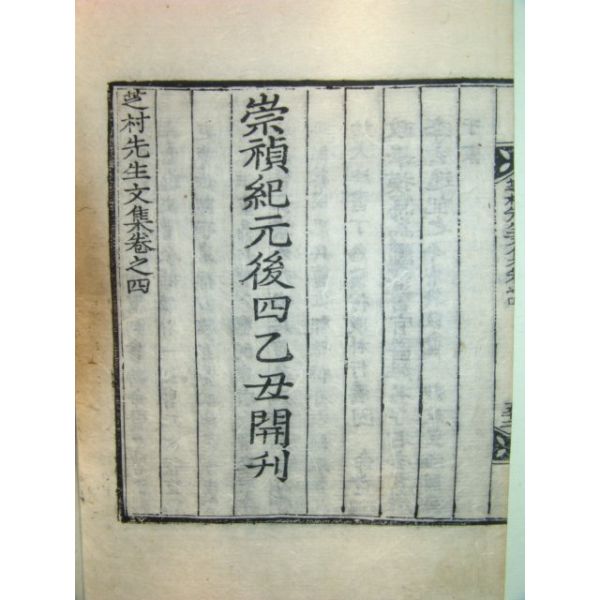 崇禎紀元後四乙丑開刊
芝村先生文集卷之四